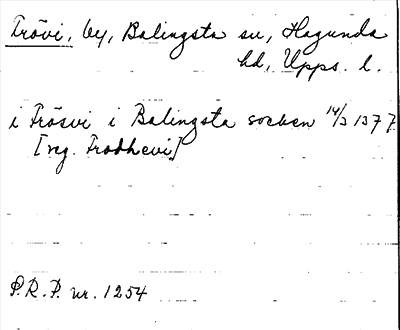 Frövi, by, Balingsta sn, Hagunda
hd, Upps. l.
i Frösvi i Balingsta socken 14/3 1377.
[reg. Frodhevi]
S.R.P. nr. 1254